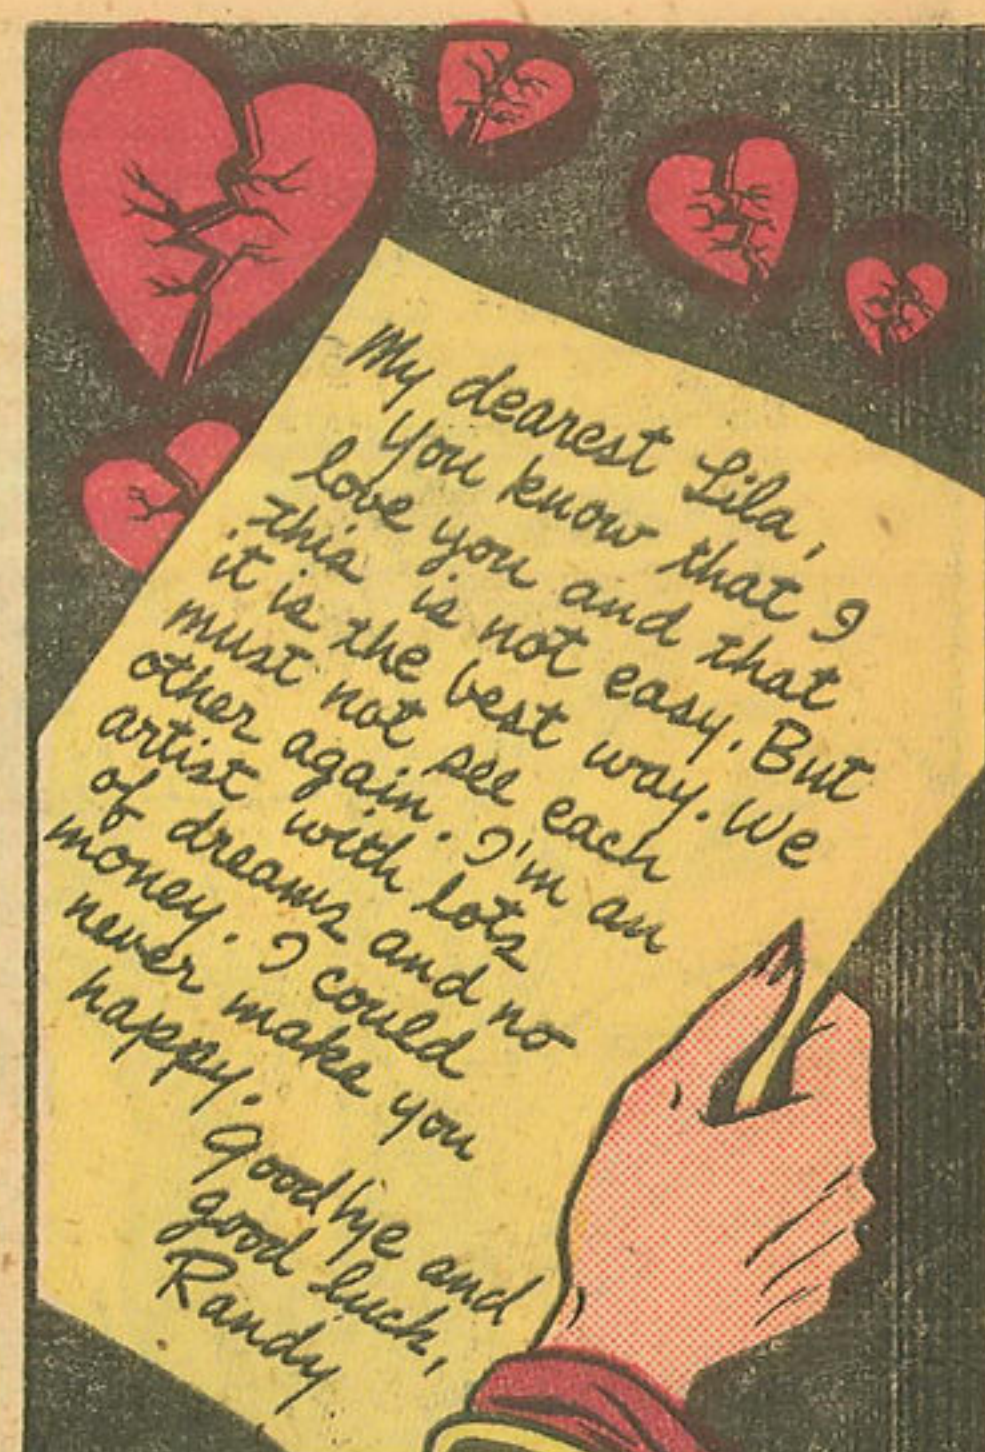 My dearest Lila,
You know that I
love you and that
this is not easy. But
it is the best way. We
must not see each
other again. I'm an
artist with lots
of dreams and no
money. I could
never make you
happy.
Goodbye and
good luck,
Randy